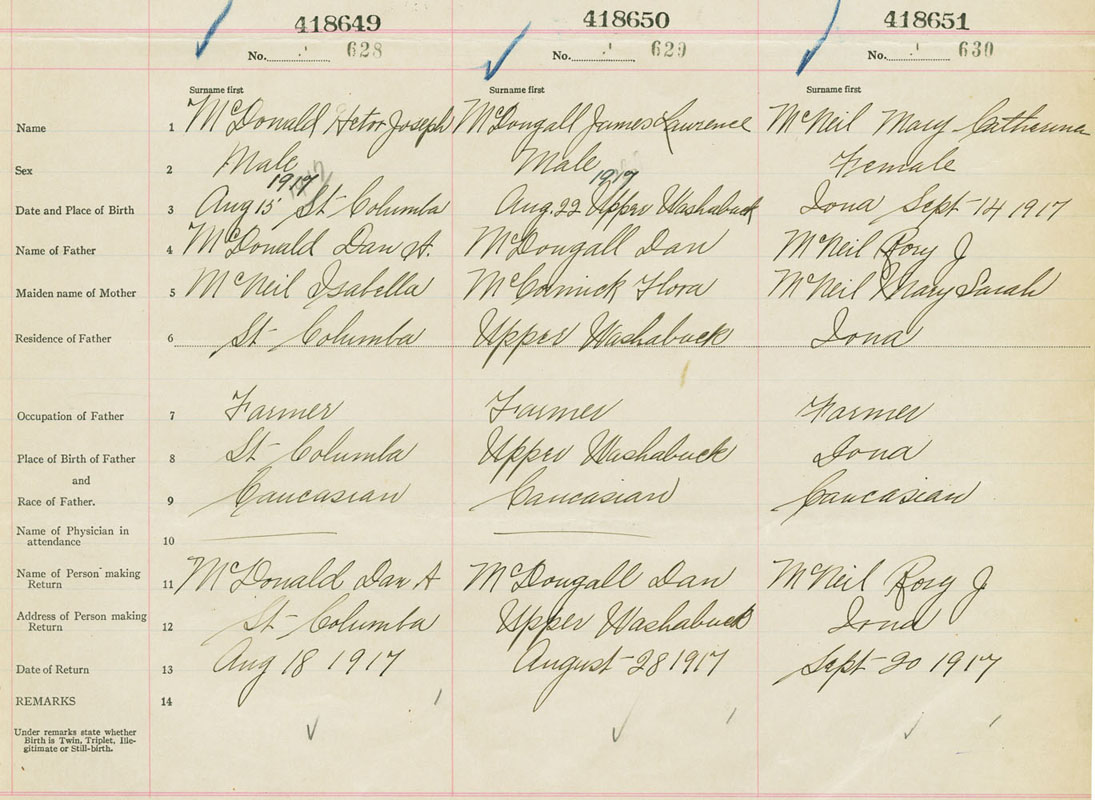 418649 418650 418651
No. 628 No. 629 No. 630
Surname first Surname first Surname first
Name 1 McDonald Hctor Joseph McDougall James Lawrence McNeil Mary Catherine
Sex 2 Male Male Female
1917 1917
Date and Place of Birth 3 Aug 15 St Columba Aug. 22 Upper Washabuck Iona Sept 14 1917
Name of Father 4 McDonald Dan A. McDougall Dan McNeil Rory J
Maiden name of Mother 5 McNeil Isabella McCormick Flora McNeil Mary Sarah
Residence of Father 6 St Columba Upper Washabuck Iona
Occupation of Father 7 Farmer Farmer Farmer
Place of Birth of Father 8 St Columba Upper Washabuck Iona
and
Race of Father. 9 Caucasian Caucasian Caucasian
Name of Physician in
attendance 10
Name of Person making
Return 11 McDonald Dan A McDougall Dan McNeil Rory J
Address of Person making
Return 12 St Columba Upper Washabuck Iona
Date of Return 13 Aug 18 1917 August 28 1917 Sept 20 1917
REMARKS 14
Under remarks state whether
Birth is Twin, Triplet, Ille-
gitimate or Still-birth.